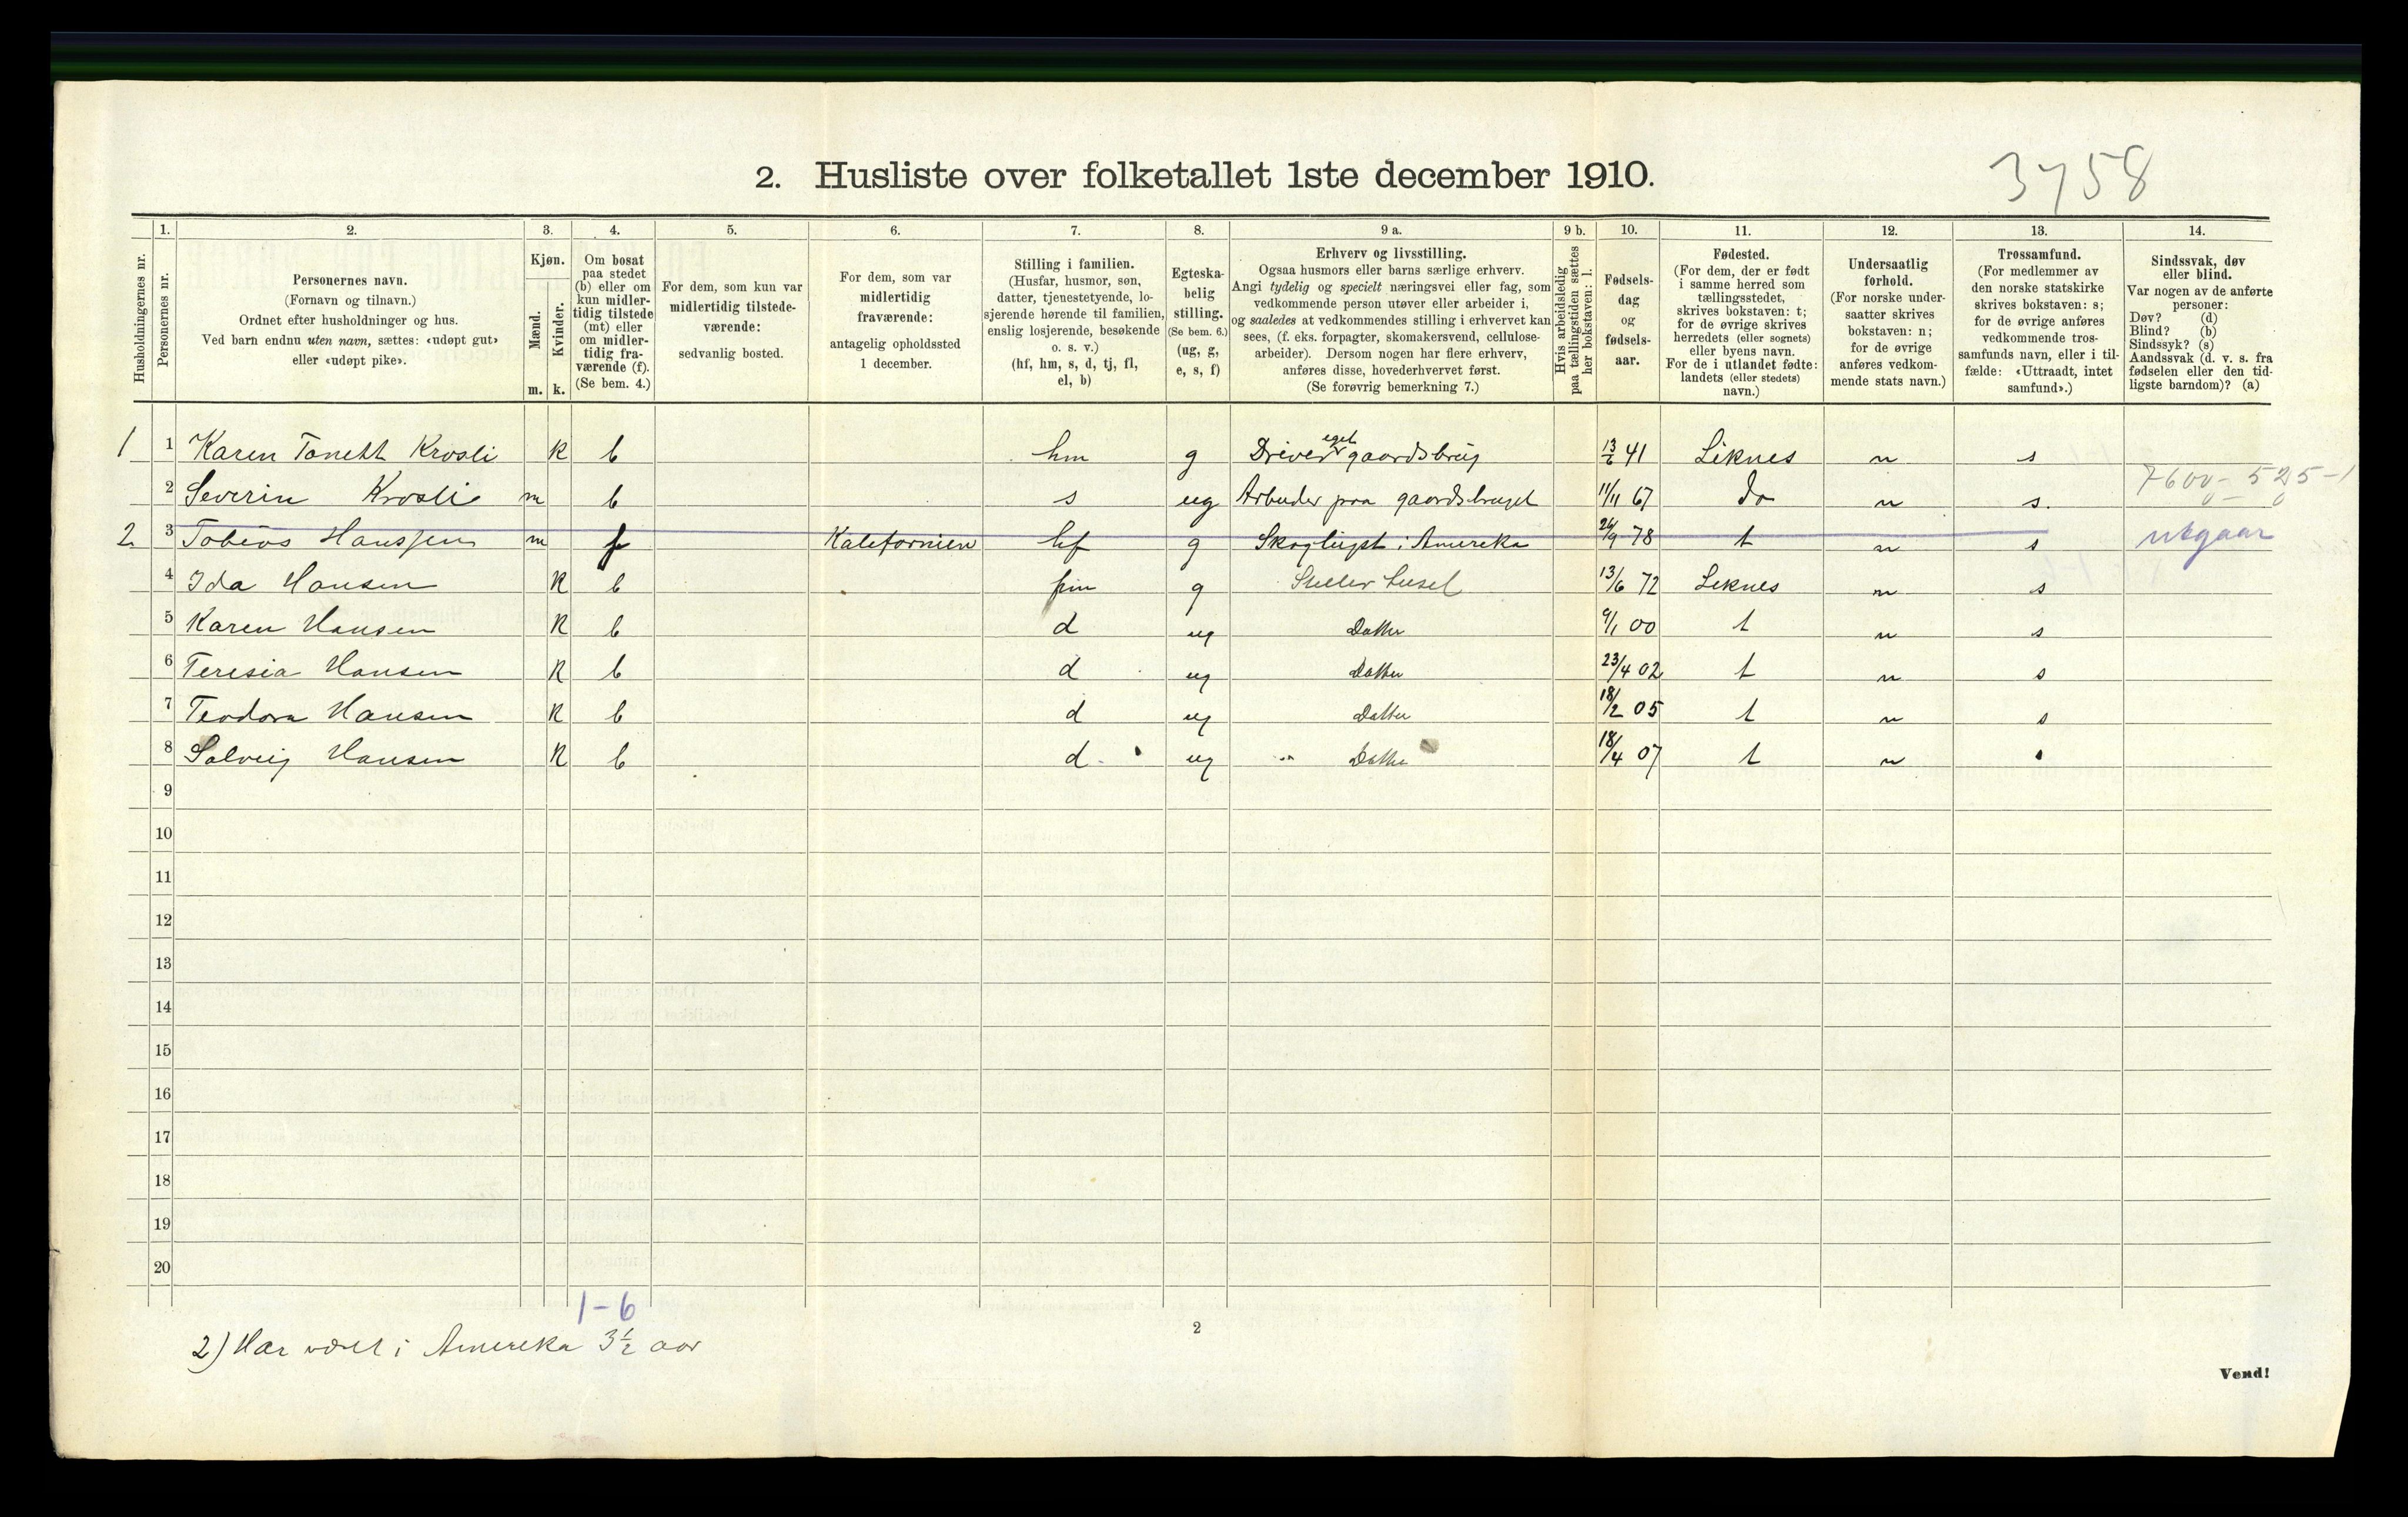 3758
2. Husliste over folketallet 1ste december 1910.
Husholdningernes nr.
1.
Personernes nr.
2.
Personernes navn.
(Fornavn og tilnavn.)
Ordnet efter husholdninger og hus.
Ved barn endnu uten navn, sættes: «udøpt gut»
eller «udøpt pike».
3.
Kjøn.
Mænd.
m.
Kvinder.
k.
4.
Om bosat
paa stedet
(b) eller om
kun midler-
tidig tilstede
(mt) eller
om midler-
tidig fra-
værende (f).
(Se bem. 4.)
5.
For dem, som kun var
midlertidig tilstede-
værende:
sedvanlig bosted.
6.
For dem, som var
midlertidig
fraværende:
antagelig opholdssted
1 december.
7.
Stilling i familien.
(Husfar, husmor, søn,
datter, tjenestetyende, lo-
sjerende hørende til familien,
enslig losjerende, besøkende
o. s. v.)
(hf, hm, s, d, tj, fl,
el, b)
8.
Egteska-
belig
stilling.
(Se bem. 6.)
(ug, g,
e, s, f)
9 a.
Erhverv og livsstilling.
Ogsaa husmors eller barns særlige erhverv.
Angi tydelig og specielt næringsvei eller fag, som
vedkommende person utøver eller arbeider i,
og saaledes at vedkommendes stilling i erhvervet kan
sees, (f. eks. forpagter, skomakersvend, cellulose-
arbeider). Dersom nogen har flere erhverv,
anføres disse, hovederhvervet først.
(Se forøvrig bemerkning 7.)
9 b.
Hvis arbeidsledig
paa tællingstiden sættes
her bokstaven: l.
10.
Fødsels-
dag
og
fødsels-
aar.
11.
Fødested.
(For dem, der er født
i samme herred som
tællingsstedet,
skrives bokstaven: t;
for de øvrige skrives
herredets (eller sognets)
eller byens navn.
For de i utlandet fødte:
landets (eller stedets)
navn.)
12.
Undersaatlig
forhold.
(For norske under-
saatter skrives
bokstaven: n;
for de øvrige
anføres vedkom-
mende stats navn.)
13.
Trossamfund.
(For medlemmer av
den norske statskirke
skrives bokstaven: s;
for de øvrige anføres
vedkommende tros-
samfunds navn, eller i til-
fælde: «Uttraadt, intet
samfund».)
14.
Sindssvak, døv
eller blind.
Var nogen av de anførte
personer:
Døv? (d)
Blind? (b)
Sindssyk? (s)
Aandssvak (d. v. s. fra
fødselen eller den tid-
ligste barndom)? (a)
1 1 Karen Tonett Krosli K b hm g Driver eget gaardsbrug 13/6 41 Liknes n s
2 Severin Krosli m b s ug Arbeider paa gaardsbruget 11/11 67 do n s. 7600-525-1
2 3 Tobias Hanssen m f Kalefornien hf g Skoghugst i Amereka 24/9 78 t n s utgaar
4 Ida Hansen K b hm g Steller huset 13/6 72 Leknes n s
5 Karen Hansen K b d ug Datter 9/1 00 t n s
6 Teresia Hansen K b d ug Datter 23/4 02 t n s
7 Teodora Hansen K b d ug Datter 18/2 05 t n s
8 Solveig Hansen K b d ug Datter 18/4 07 t n
9
10
11
12
13
14
15
16
17
18
19
20
1-6
2) Har været i Amereka 3½ aar
2
Vend!